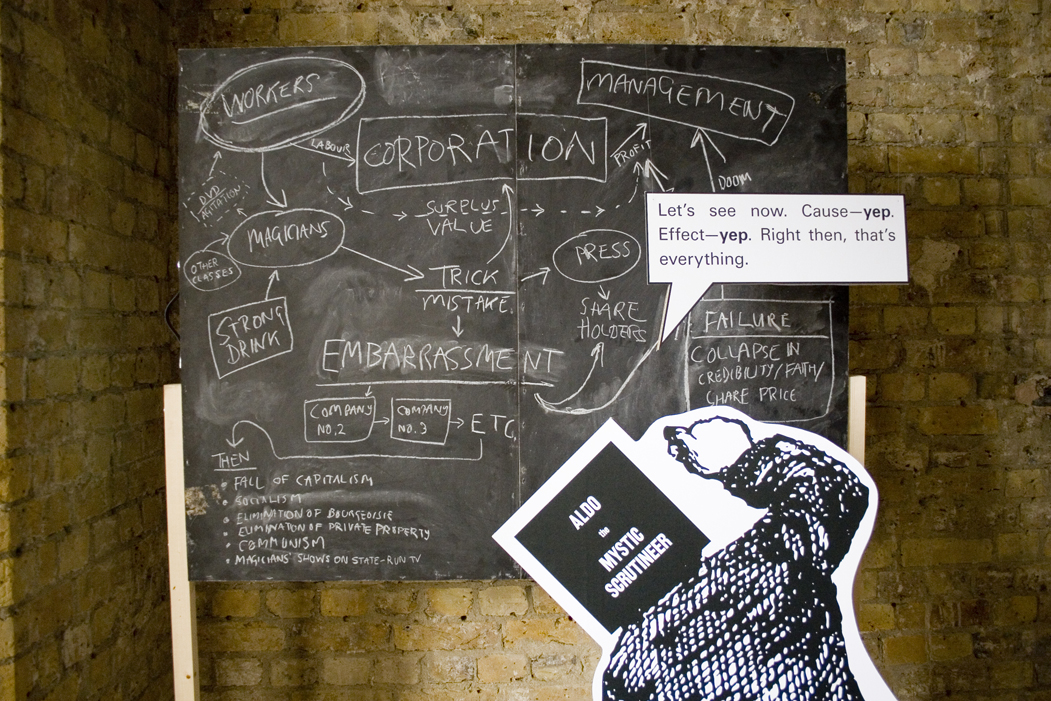 WORKERS
MANAGEMENT
LABOUR
CORPORATION
PROFIT
DOOM
DVD
AGITATION
SURPLUS
VALUE
MAGICIANS
OTHER
CLASSES
TRICK
MISTAKE
PRESS
SHARE
HOLDERS
STRONG
DRINK
EMBARRASSMENT
COMPANY
NO.2
COMPANY
NO.3
ETC.
FAILURE
COLLAPSE IN
CREDIBILITY/FAITH/
SHARE PRICE
THEN
• FALL OF CAPITALISM
• SOCIALISM
• ELIMINATION OF BOURGEOISIE
• ELIMINATION OF PRIVATE PROPERTY
• COMMUNISM
• MAGICIANS' SHOWS ON STATE-RUN TV
Let's see now. Cause—yep.
Effect—yep. Right then, that's
everything.
ALDO
the
MYSTIC
SCRUTINEER